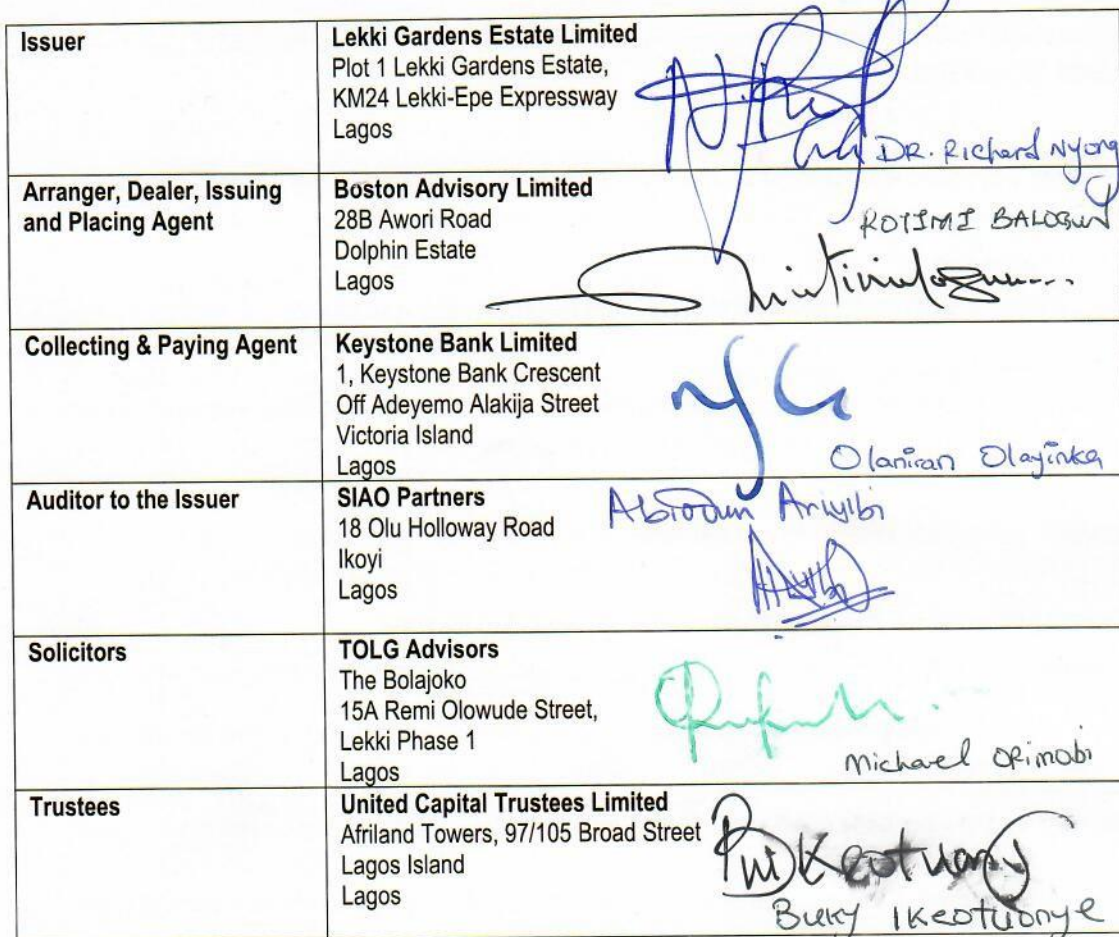 Issuer
Lekki Gardens Estate Limited
Plot 1 Lekki Gardens Estate,
KM24 Lekki-Epe Expressway
Lagos
DR. Richard Nyong
Arranger, Dealer, Issuing
and Placing Agent
Boston Advisory Limited
28B Awori Road
Dolphin Estate
Lagos
ROTIMI BALOGUN
Collecting & Paying Agent
Keystone Bank Limited
1, Keystone Bank Crescent
Off Adeyemo Alakija Street
Victoria Island
Lagos
Olaniran Olayinka
Auditor to the Issuer
SIAO Partners
18 Olu Holloway Road
Ikoyi
Lagos
Abiodun Ariyibi
Solicitors
TOLG Advisors
The Bolajoko
15A Remi Olowude Street,
Lekki Phase 1
Lagos
Michael Orimobi
Trustees
United Capital Trustees Limited
Afriland Towers, 97/105 Broad Street
Lagos Island
Lagos
Buky Ikeotuonye